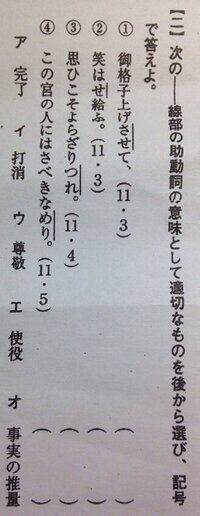 【二】 次の――線部の助動詞の意味として適切なものを後から選び、記号
で答えよ。
① 御格子上げさせて、(11・3) ( )
② 笑はせ給ふ。(11・3) ( )
③ 思ひこそよらざりつれ。(11・4) ( )
④ この宮の人にはさべきなめり。(11・5) ( )
ア 完了 イ 打消 ウ 尊敬 エ 使役 オ 事実の推量